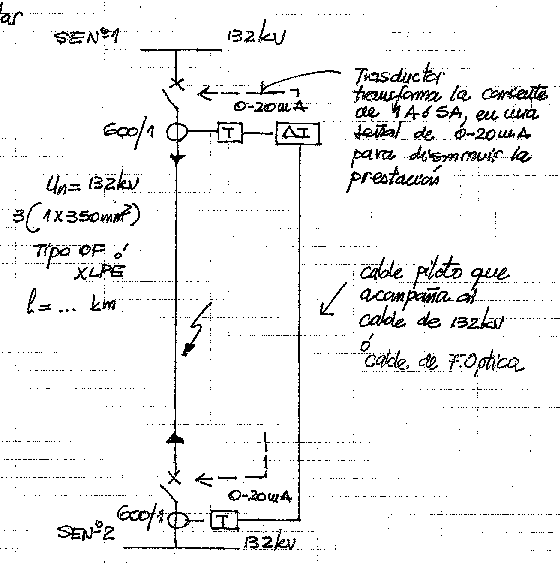 SE Nº1
132kV
0-20mA
Trasductor
transforma la corriente
de 1A ó 5A, en una
señal de 0-20mA
para disminuir la
prestación
600/1
T
ΔI
Un = 132kV
3(1x350mm²)
Tipo OF ó
XLPE
l = ... km
cable piloto que
acompaña al
cable de 132kV
ó
cable de F.Optica
0-20mA
600/1
T
SE Nº2
132kV